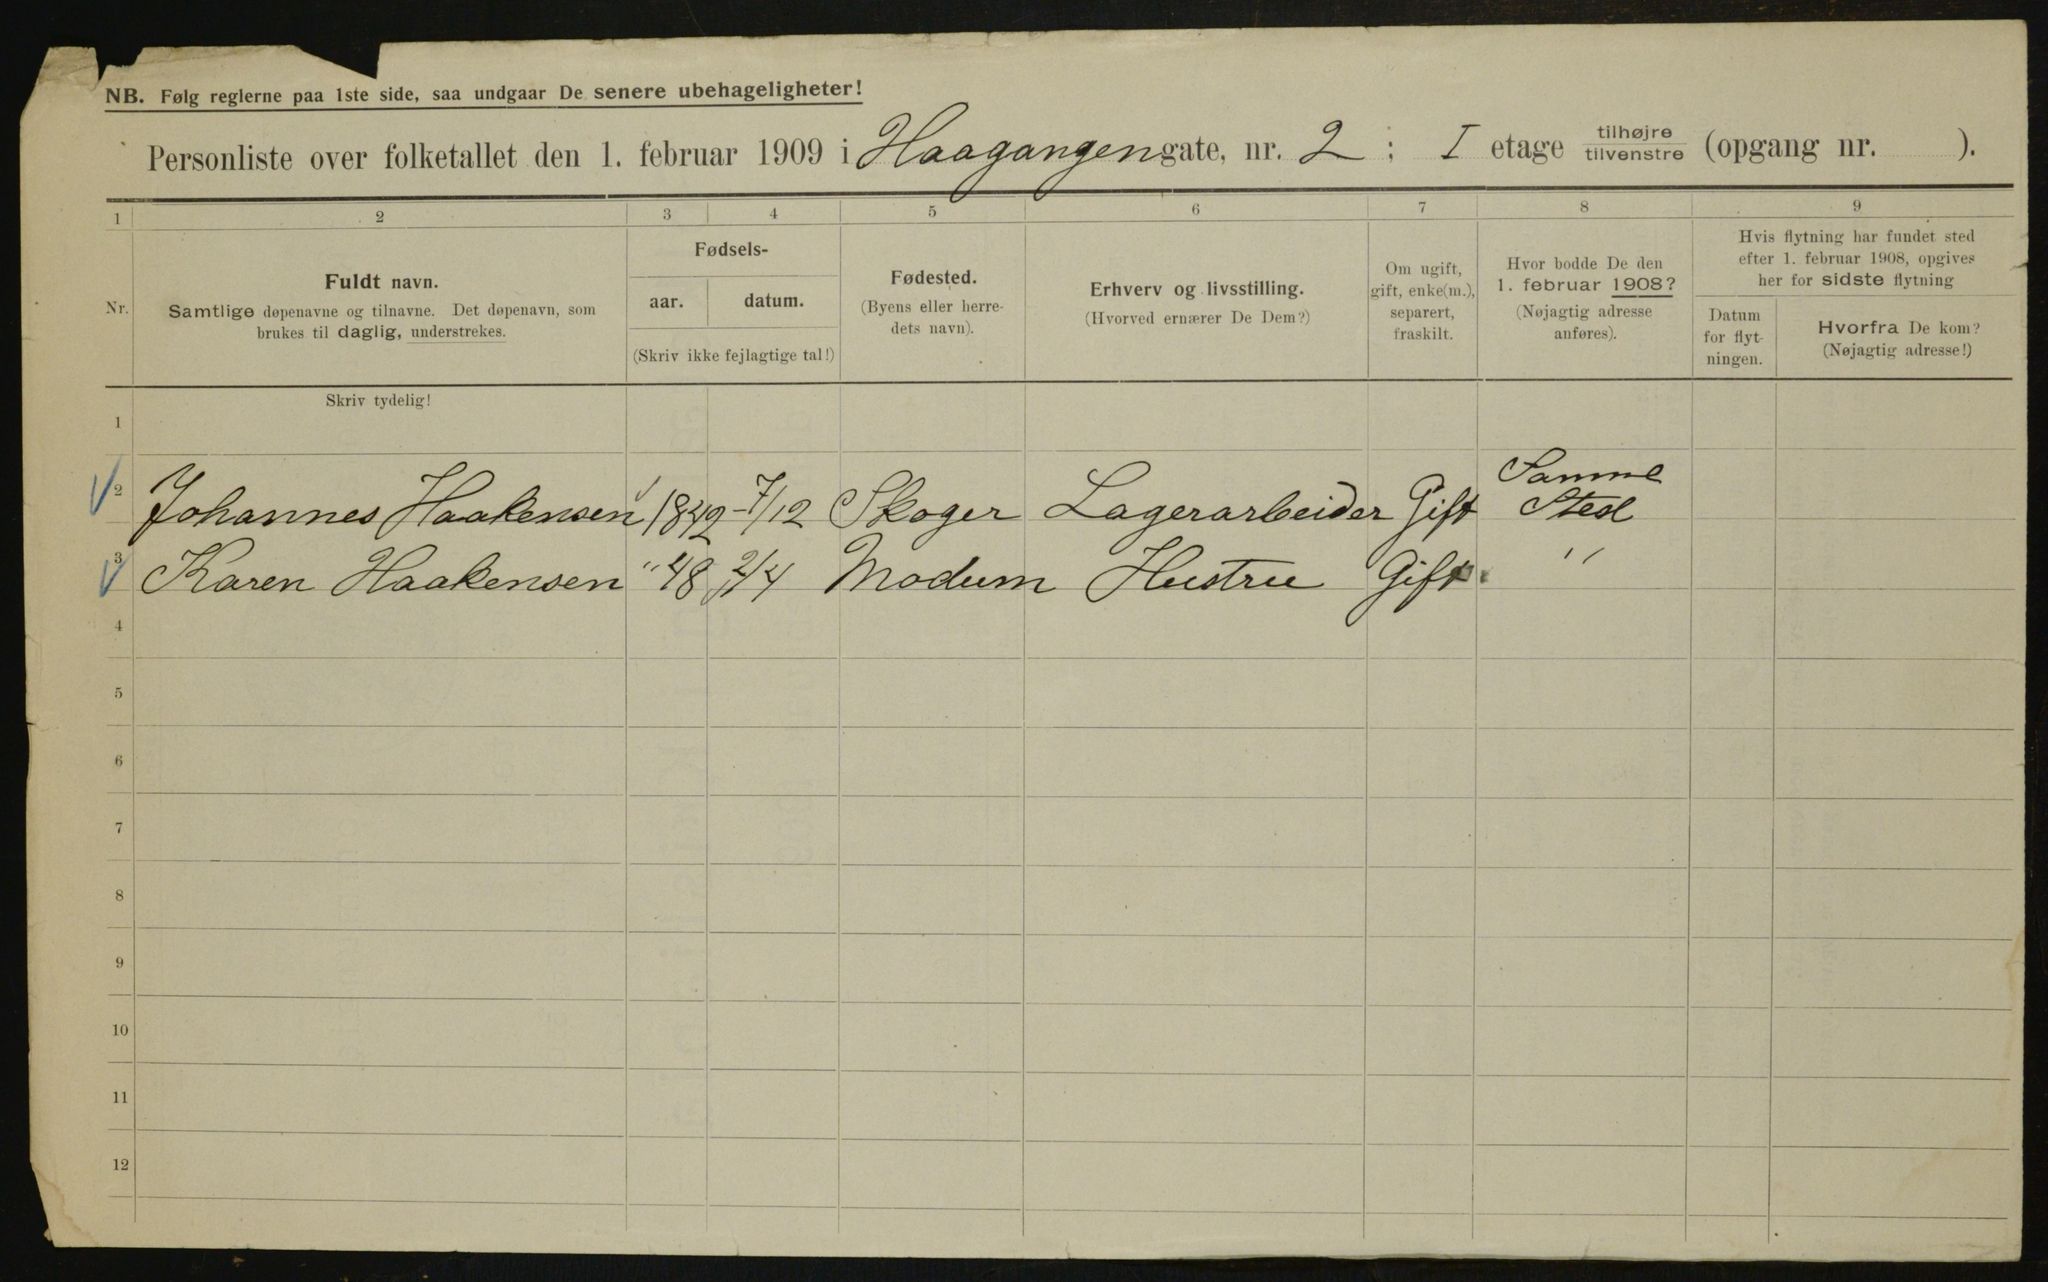 NB. Følg reglerne paa 1ste side, saa undgaar De senere ubehageligheter!
Personliste over folketallet den 1. februar 1909 i Haagangengate, nr. 2 ; I etage tilhøjre/tilvenstre (opgang nr. ).
1 2 3 4 5 6 7 8 9
Nr.
Fuldt navn.
Samtlige døpenavne og tilnavne. Det døpenavn, som
brukes til daglig, understrekes.
Fødsels-
aar. datum.
(Skriv ikke fejlagtige tal!)
Fødested.
(Byens eller herre-
dets navn).
Erhverv og livsstilling.
(Hvorved ernærer De Dem?)
Om ugift,
gift, enke(m.),
separert,
fraskilt.
Hvor bodde De den
1. februar 1908?
(Nøjagtig adresse
anføres).
Hvis flytning har fundet sted
efter 1. februar 1908, opgives
her for sidste flytning
Datum
for flyt-
ningen.
Hvorfra De kom?
(Nøjagtig adresse!)
Skriv tydelig!
1
2 Johannes Haakensen 1842 - 7/12 Skoger Lagerarbeider Gift Samme
Sted
3 Karen Haakensen " 48 2/4 Modum Hustru Gift "
4
5
6
7
8
9
10
11
12